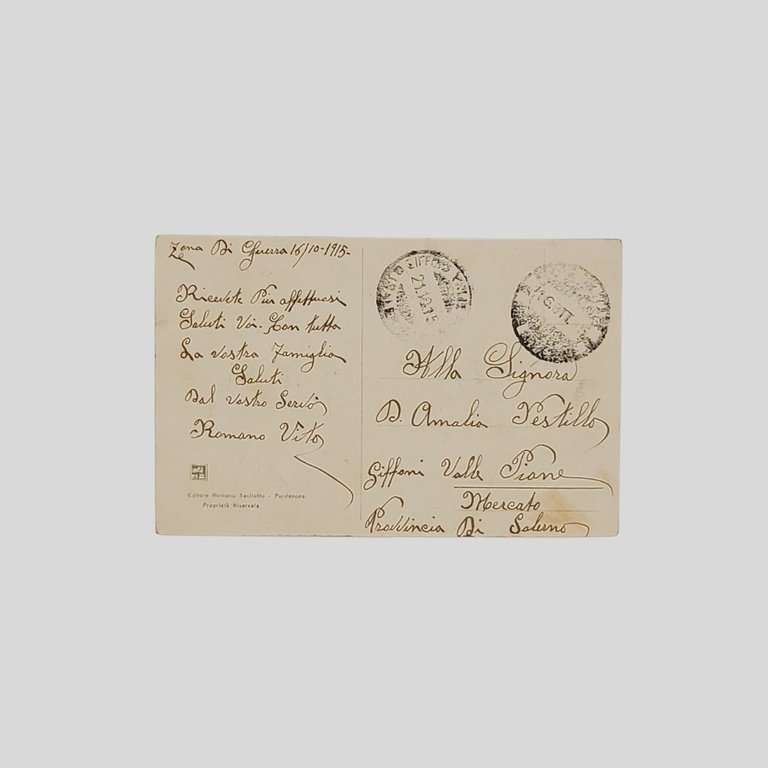 Zona Di Guerra 16/10-1915-
Ricevete Piu affettuosi
Saluti Voi. Con tutta
La vostra Famiglia
Saluti
Dal vostro Servo
Romano Vito
Editore Romano Sacilotto - Pordenone
Proprietà Riservata.
21.10.15
Alla Signora
D. Amalia Pestillo
Giffoni Valle Piane
Mercato
Provincia Di Salerno